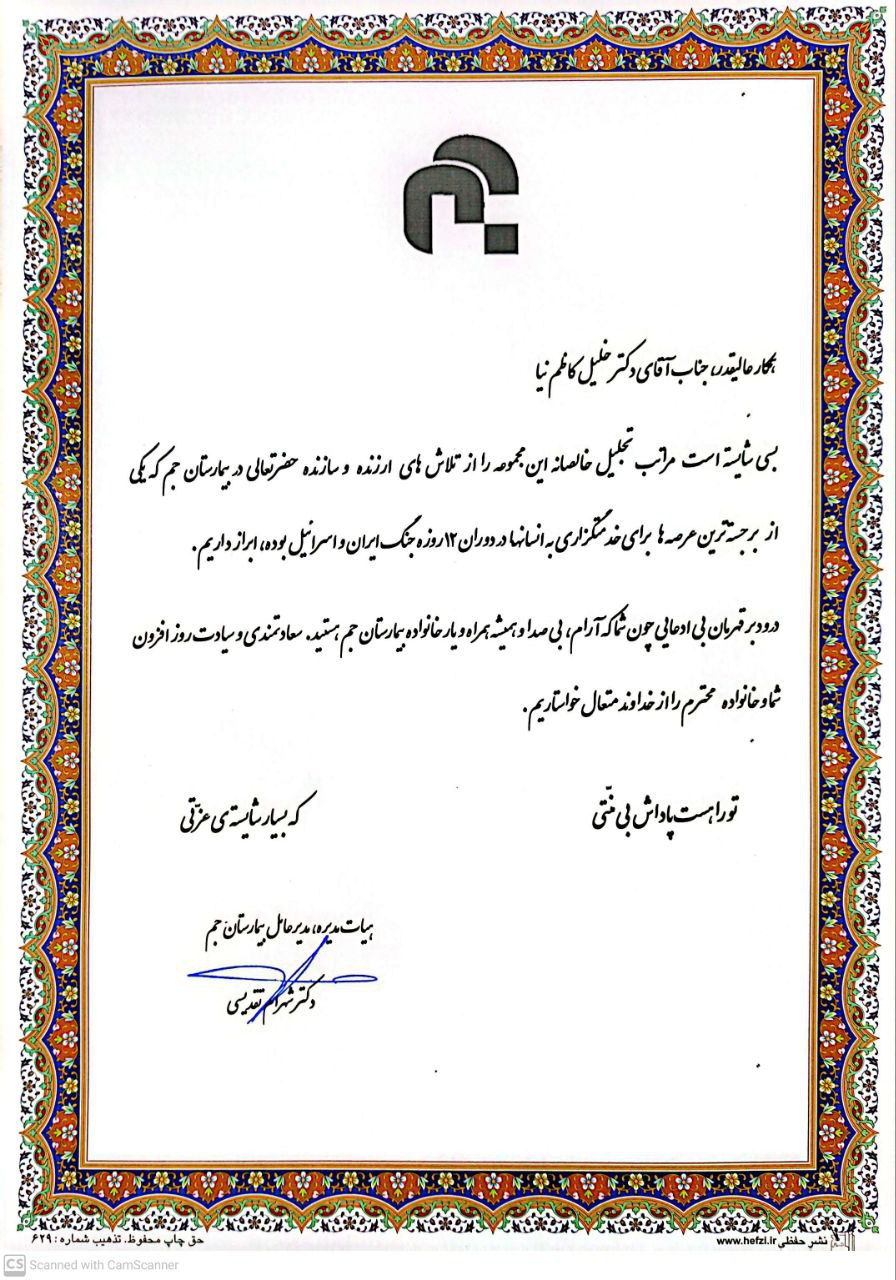 همکار عالیقدر، جناب آقای دکتر خلیل کاظم نیا
بسی شایسته است مراتب تجلیل خالصانه این مجموعه را از تلاش های ارزنده و سازنده حضرتعالی در بیمارستان جم که یکی
از برجسته‌ترین عرصه ها برای خدمتگزاری به انسانها در دوران ۱۲ روزه جنگ ایران و اسرائیل بوده، ابراز داریم.
درود بر قهرمان بی ادعایی چون شما که آرام، بی صدا و همیشه همراه و یار خانواده بیمارستان جم هستید. سعادتمندی و سیادت روز افزون
شما و خانواده محترم را از خداوند متعال خواستاریم.
تو را هست پاداش بی منّتی که بسیار شایسته‌ی عزّتی
هیات مدیره، مدیرعامل بیمارستان جم
دکتر شهرام تقدیسی
نشر حفظی www.hefzi.ir حق چاپ محفوظ. تذهیب شماره: ۶۲۹
CS Scanned with CamScanner